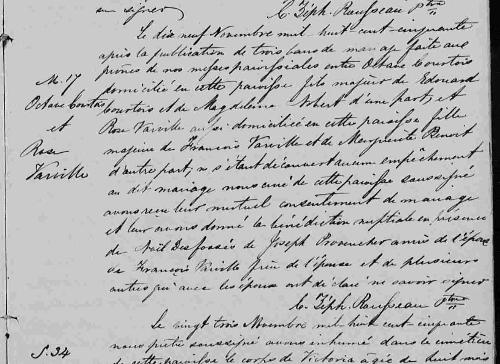 en signer
C. Zéph. Rousseau Ptre
Le dix neuf Novembre mil huit cent cinquante
après la publication de trois bans de mariage faite aux
prônes de nos messes paroissiales entre Octave Courtois
M. 17
Octave Courtois
et
Rose
Vaiville
domicilié en cette paroisse fils majeur de Edouard
Courtois et de Magdeleine Hebert d'une part, et
Rose Vaiville aussi domiciliée en cette paroisse fille
majeure de François Vaiville et de Marguerite Benoit
d'autre part, ne s'étant découvert aucun empêchement
au dit mariage nous curé de cette paroisse soussigné
avons reçu leur mutuel consentement de mariage
et leur avons donné la bénédiction nuptiale en présence
de Noël Desfossés de Joseph Provencher amis de l'époux
de François Vaiville père de l'épouse et de plusieurs
autres qui avec les époux ont déclaré ne savoir signer
C. Zéph. Rousseau Ptre
S. 34
Le vingt trois Novembre mil huit cent cinquante
nous prêtre soussigné avons inhumé dans le cimetière
de cette paroisse le corps de Victoria âgée de huit mois